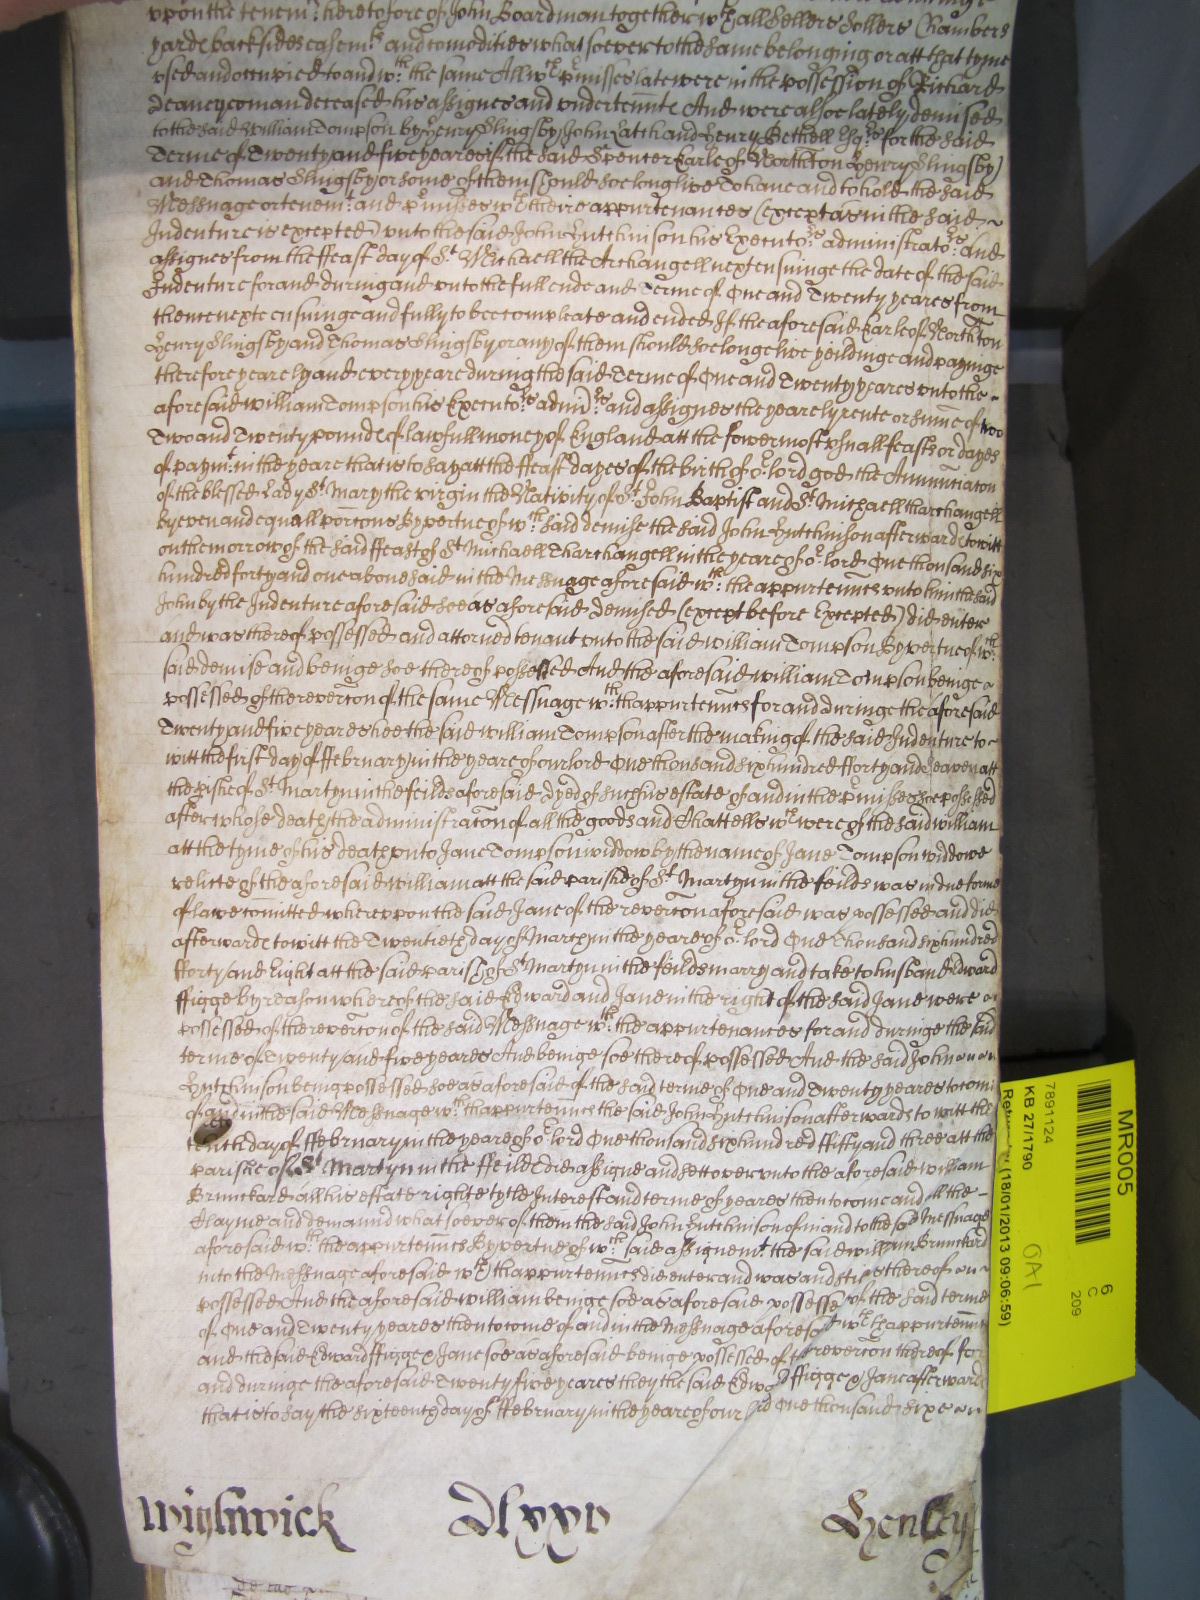 vpon the tenemt. heretofore of John Boardman together wth all Sellers Sollers Chambers
yarde backsides easemts. and comodities whatsoever to the same belonging or att that tyme
vsed and occupied to and wth. the same All wch pmisses late were in the possession of Richard
Deane yeoman deceased his assignes and vndertennte And were alsoe lately demised
to the said William Tompson by Henry Slingsby John Latch and Henry Bethell Esqrs. for the said
Terme of Twenty and five yeares if the said Spencer Earle of Northton Henry Slingsby
and Thomas Slingsby or some of them should soe long live To have and to hold the said
Messuage or tenemt. and pmisses wth theire appurtenances (except as in the said
Indenture is excepted) vnto the said John Hutchinson his Executors. administrators. and
assignes from the ffeast day of St. Michaell the Archangell next ensuinge the date of the said
Indenture for and during and vnto the full ende and Terme of One and Twenty yeares from
thence nexte ensuinge and fully to bee compleate and ended If the aforesaid Earle of Northton
Henry Slingsby and Thomas Slingsby or any of them should soe longe live yeildinge and payinge
therefore yearely and every yeare during the said Terme of One and Twenty yeares vnto the
aforesaid William Tompson his Executors. admrs. and assignes the yearely rente or sume of two
Two and Twenty pounde of lawfull money of England att the fower most vsuall feasts or dayes
of paymt. in the yeare that is to say att the ffeast dayes of the birth of or. lord god the Anuntiacon
of the blessed Lady St. Mary the virgin the Nativity of St. John Baptist and St. Michaell tharchangell
By even and equall porcons By vertue of wch. said demise the said John Hutchinson afterwarde to witt
on the morrow of the said ffeast of St Michaell Tharchangell in the yeare of or. lord One thousand six
hundred forty and one abovesaid in the Messuage aforesaid wth. the appurtennces vnto him the said
John by the Indenture aforesaid soe as aforesaid demised (except before Excepted) did enter
and was thereof possessed and attorned tenant vnto the said William Tompson By vertue of wch.
said demise and beinge soe thereof possessed And the aforesaid William Tompson beinge
possessed of the revercon of the same Messuage wth. thappurtennces for and duringe the aforesaid
Twenty and five yeares hee the said William Tompson after the making of the said Indenture to
witt the first day of ffebruary in the yeare of our lord One thousand six hundred fforty and seaven att
the pishe of St. Martyn in the feilds aforesaid dyed of such his estate of and in the pmisses soe possessed
after whose death the administracon of all the goods and Chattells wch were of the said William
att the tyme of his death vnto Jane Tompson widdow by the name of Jane Tompson widdowe
relicte of the aforesaid William att the said parishe of St. Martyn in the feilds was in due forme
of lawe comitted wherevpon the said Jane of the revercon aforesaid was possessed and did
afterwarde to witt the Twentieth day of March in the yeare of or. lord One Thousand six hundred
fforty and Eight att the said parish of St Martyn in the feilds marry and take to husband Edward
ffigge by reason whereof the said Edward and Jane in the right of the said Jane were
possessed of the revercon of the said Messuage wth. the appurtenances for and duringe the said
terme of Twenty and five yeares And beinge soe thereof possessed And the said John
Hutchinson being possessed soe as aforesaid of the said terme of One and Twenty yeares to come
of and in the said Messuage wth. thappurtennces the said John Hutchinson afterwards to witt the
tenth day of ffebruary in the yeare of or. lord One thousand six hundred ffifty and three att the
parishe of St Martyn in the ffeilde did assigne and sett over vnto the aforesaid William
Brunckard all his estate righte tytle Interest and terme of yeares then to come and all the
Clayme and demaund whatsoever of them the said John Hutchinson of in and to the sd Messuage
aforesaid wth. the appurtennces By vertue of wch. said assignemt. the said William Brunckard
into the Messuage aforesaid wth thappurtennces did enter and was and still is thereof
possessed And the aforesaid William beinge soe as aforesaid possessed of the said terme
of One and Twenty yeares then to come of and in the Messuage aforesd wth thappurtennces
and the said Edward ffigge & Jane soe as aforesaid beinge possessed of the revercon thereof for
and duringe the aforesaid Twenty five yeares they the said Edward ffigge & Jane afterwarde
that is to say the sixteenth day of ffebruary in the yeare of our lord One thousand sixe
Wightwick Dlxxv Henley
MR005
7891124
KB 27/1790
(18/01/2013 09:06:59)
OA1
6
C
209